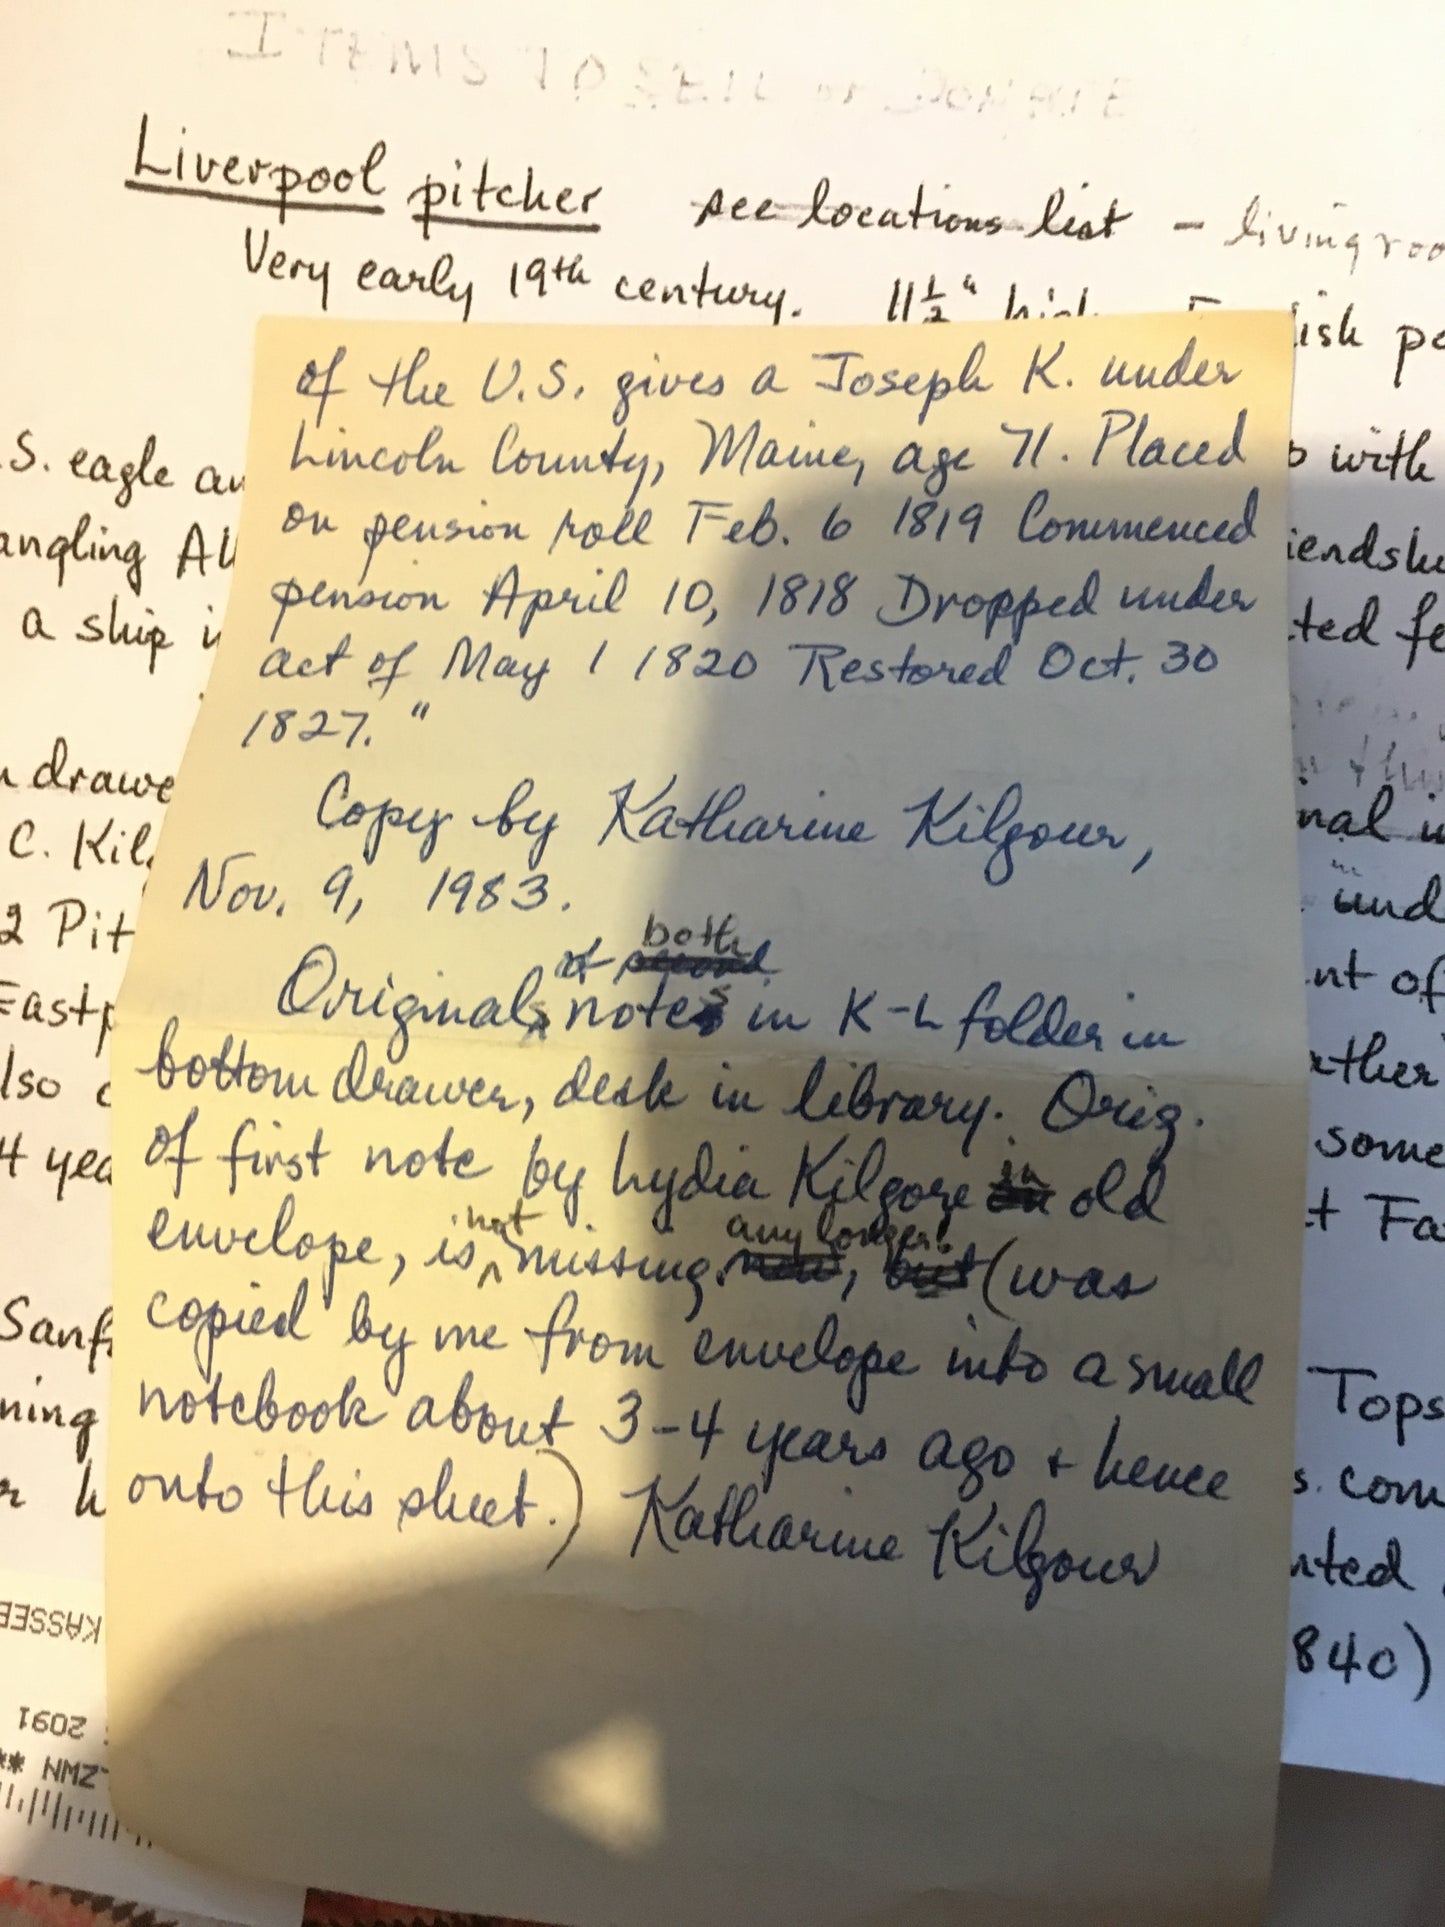 ITEMS TO SELL or DONATE
Liverpool pitcher see locations list - living
Very early 19th century. 11½" high
of the U.S. gives a Joseph K. under
Lincoln County, Maine, age 71. Placed
on pension roll Feb. 6 1819 Commenced
pension April 10, 1818 Dropped under
act of May 1 1820 Restored Oct. 30
1827."
Copy by Katharine Kilgour,
Nov. 9, 1983.
both
Originals notes in K-L folder in
bottom drawer, desk in library. Orig.
of first note by Lydia Kilgore in old
envelope, is not missing any longer! (was
copied by me from envelope into a small
notebook about 3-4 years ago + hence
onto this sheet.) Katharine Kilgour
S. eagle
a ship
C. Kil
2 Pit
with
und
of
some
Tops
840)
KASSEB
2091
ZWN **